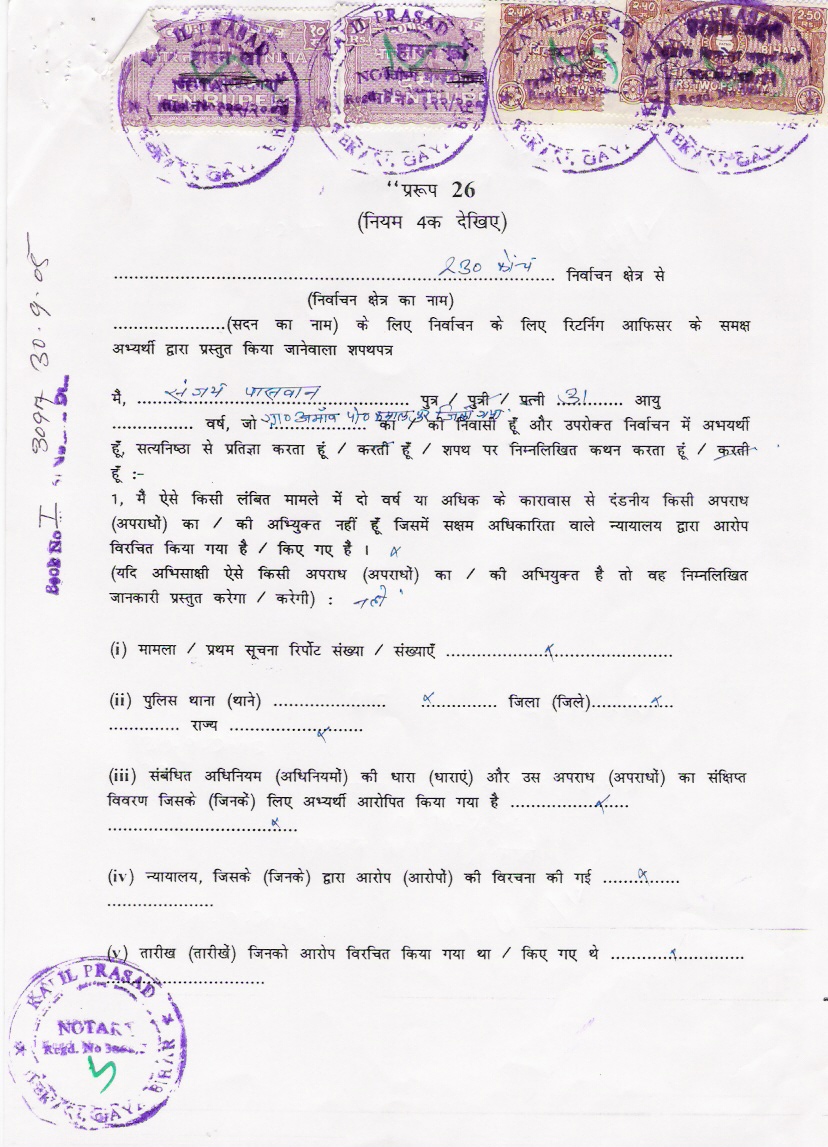 KAPIL PRASAD
NOTARY
TEKARI, GAYA, BIHAR
INDIA
2.40
2.40
2.50
BIHAR
“प्ररूप 26
(नियम 4क देखिए)
........ 230 कोंच ........ निर्वाचन क्षेत्र से
(निर्वाचन क्षेत्र का नाम)
......................(सदन का नाम) के लिए निर्वाचन के लिए रिटर्निग आफिसर के समक्ष
अभ्यर्थी द्वारा प्रस्तुत किया जानेवाला शपथपत्र
मै, ........ संजय पासवान ........ पुत्र / पुत्री / प्रत्नी ........ आयु
................ वर्ष, जो ग्रा० पो० जिला गया का / की निवासी हूँ और उपरोक्त निर्वाचन में अभयर्थी
हूँ, सत्यनिष्ठा से प्रतिज्ञा करता हूं / करती हूँ / शपथ पर निम्नलिखित कथन करता हूं / करती
हूँ :-
1, मै ऐसे किसी लंबित मामले में दो वर्ष या अधिक के कारावास से दंडनीय किसी अपराध
(अपराधों) का / की अभ्युिक्त नहीं हूँ जिसमें सक्षम अधिकारिता वाले न्यायालय द्वारा आरोप
विरचित किया गया है / किए गए है । x
(यदि अभिसाक्षी ऐसे किसी अपराध (अपराधों) का / की अभियुक्त है तो वह निम्नलिखित
जानकारी प्रस्तुत करेगा / करेगी) :
(i) मामला / प्रथम सूचना रिर्पोट संख्या / संख्याएँ ........x........
(ii) पुलिस थाना (थाने) ...................... x............ जिला (जिले)..........x...
............. राज्य ................x.......
(iii) संबंधित अधिनियम (अधिनियमों) की धारा (धाराएं) और उस अपराध (अपराधों) का संक्षिप्त
विवरण जिसके (जिनके) लिए अभ्यर्थी आरोपित किया गया है ..............x.....
...........................x....
(iv) न्यायालय, जिसके (जिनके) द्वारा आरोप (आरोपों) की विरचना की गई ......x.......
....................
(v) तारीख (तारीखें) जिनको आरोप विरचित किया गया था / किए गए थे ...........x.............
..............................
Book No I
30.9.05
KAPIL PRASAD
NOTARY
Regd. No
TEKARI, GAYA, BIHAR